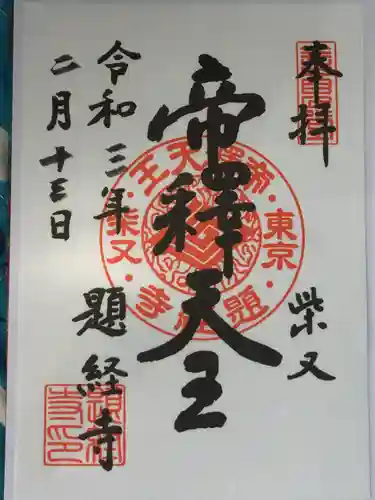 奉拝
柴又
帝釈天王
令和三年
二月十三日
題経寺
帝釋天王・東京・題経寺・柴又